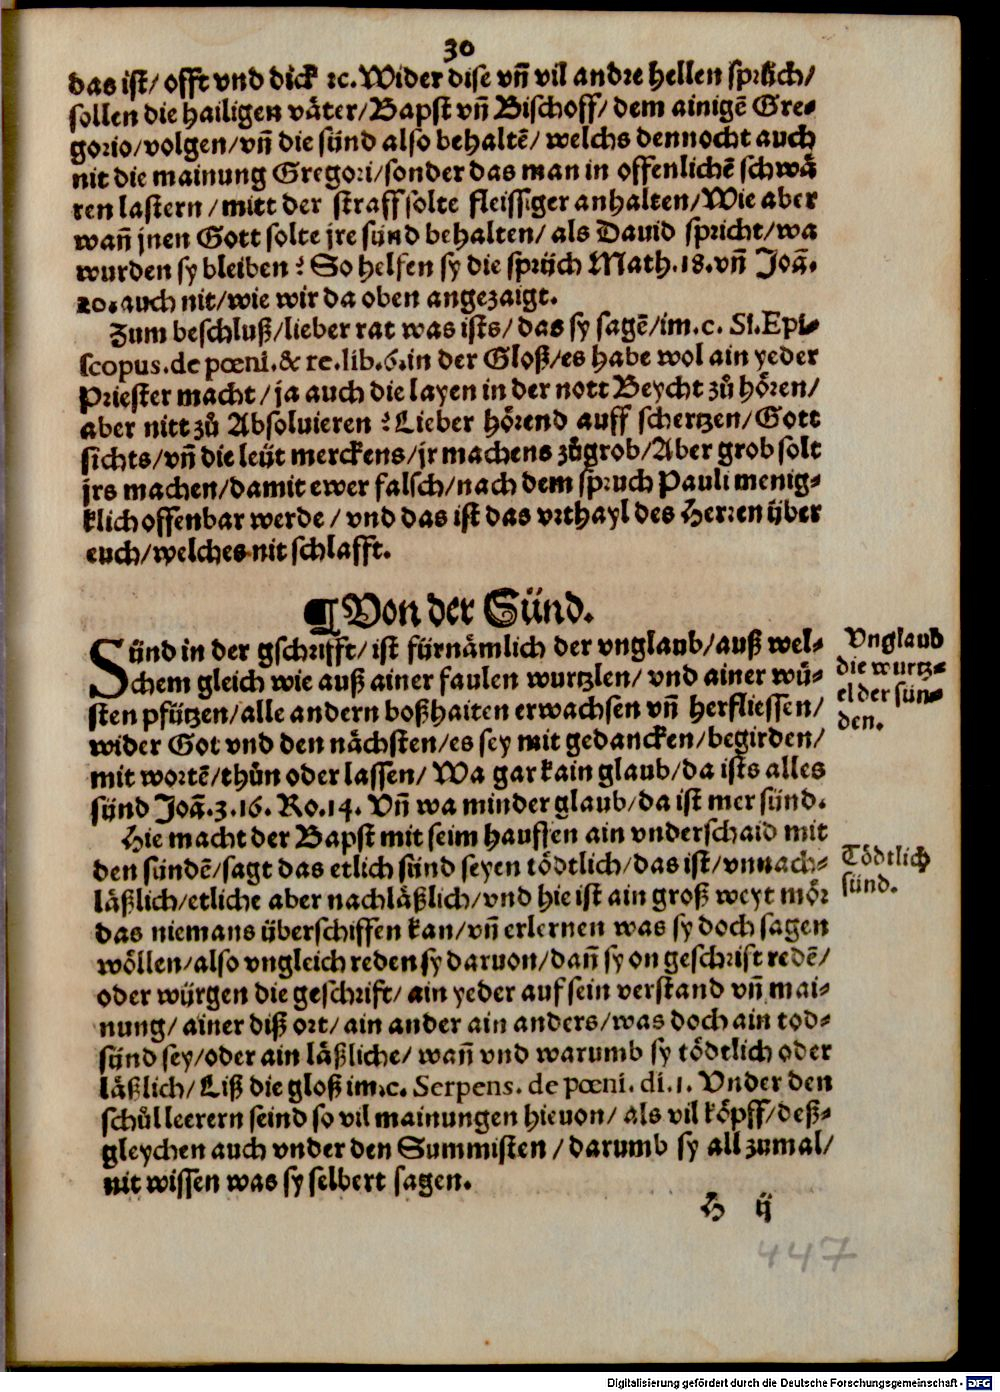 30
das ist/ offt vnd dick ꝛc. Wider dise vñ vil andre hellen sprüch/
sollen die hailigen väter/ Bapst vñ Bischoff/ dem ainigē Gre-
gorio/ volgen/ vñ die sünd also behaltē/ welchs dennocht auch
nit die mainung Gregori/ sonder das man in offenlichē schwä
ren lastern/ mitt der straff solte fleissiger anhalten/ Wie aber
wañ jnen Gott solte jre sünd behalten/ als Dauid spricht/ wa
wurden sy bleiben? So helfen sy die sprüch Math. 18. vñ Joā.
20. auch nit/ wie wir da oben angezaigt.
Zum beschluß/ lieber rat was ists/ das sy sagē/ im. c. Si. Epi-
scopus. de pœni. & re. lib. 6. in der Gloß/ es habe wol ain yeder
Priester macht/ ja auch die layen in der nott Beycht zů hören/
aber nitt zů Absoluieren? Lieber hörend auff schertzen/ Gott
sichts/ vñ die leüt merckens/ jr machens zůgrob/ Aber grob solt
jrs machen/ damit ewer falsch/ nach dem spruch Pauli menig-
klich offenbar werde/ vnd das ist das vrthayl des Herren über
euch/ welches nit schlafft.
¶ Von der Sünd.
Sünd in der gschrifft/ ist fürnämlich der vnglaub/ auß wel-
chem gleich wie auß ainer faulen wurtzlen/ vnd ainer wü-
sten pfützen/ alle andern boßhaiten erwachsen vñ herfliessen/
wider Got vnd den nächsten/ es sey mit gedancken/ begirden/
mit wortē/ thůn oder lassen/ Wa gar kain glaub/ da ists alles
sünd Joā. 3. 16. Ro. 14. Vñ wa minder glaub/ da ist mer sünd.
Vnglaub
die wurtz-
el der sün-
den.
Hie macht der Bapst mit seim hauffen ain vnderschaid mit
den sündē/ sagt das etlich sünd seyen tödtlich/ das ist/ vnnach-
läßlich/ etliche aber nachläßlich/ vnd hie ist ain groß weyt mör
das niemans überschiffen kan/ vñ erlernen was sy doch sagen
wöllen/ also vngleich reden sy daruon/ dañ sy on geschrift redē/
oder würgen die geschrift/ ain yeder auf sein verstand vñ mai-
nung/ ainer diß ort/ ain ander ain anders/ was doch ain tod-
sünd sey/ oder ain läßliche/ wañ vnd warumb sy tödtlich oder
läßlich/ Liß die gloß im. c. Serpens. de pœni. di. 1. Vnder den
schůlleerern seind so vil mainungen hieuon/ als vil köpff/ deß-
gleychen auch vnder den Summisten/ darumb sy all zumal/
nit wissen was sy selbert sagen.
Tödtlich
sünd.
H ij
447
Digitalisierung gefördert durch die Deutsche Forschungsgemeinschaft - DFG